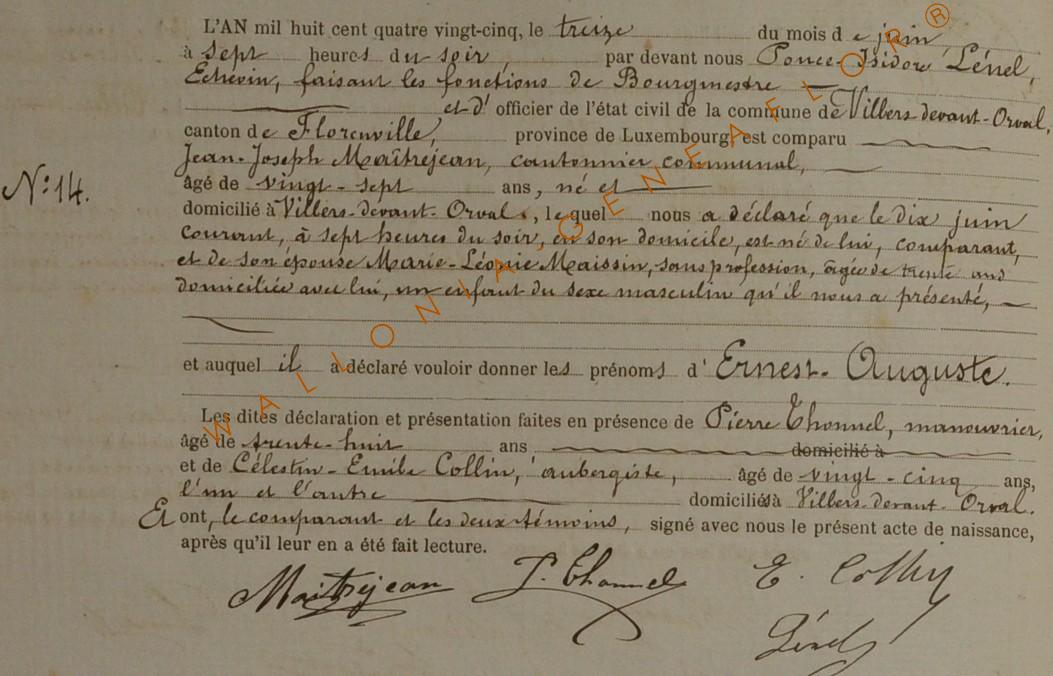 L'AN mil huit cent quatre vingt-cinq, le treize du mois de juin
à sept heures du soir, par devant nous Ponce-Isidore Lénel,
Echevin, faisant les fonctions de Bourgmestre
et d' officier de l'état civil de la commune de Villers devant-Orval,
canton de Florenville, province de Luxembourg est comparu
Jean-Joseph Maîtrejean, cantonnier communal,
N° 14. âgé de vingt-sept ans, né et
domicilié à Villers-devant-Orval, lequel nous a déclaré que le dix juin
courant, à sept heures du soir, en son domicile, est né de lui, comparant,
et de son épouse Marie-Léonie Maissin, sans profession, âgée de trente ans
domiciliée avec lui, un enfant du sexe masculin qu'il nous a présenté,
et auquel il a déclaré vouloir donner les prénoms d' Ernest-Auguste.
Les dites déclaration et présentation faites en présence de Pierre Thonnel, manouvrier,
âgé de trente-huit ans domicilié à
et de Célestin-Emile Collin, aubergiste, âgé de vingt-cinq ans,
l'un et l'autre domiciliés à Villers-devant-Orval.
Et ont, le comparant et les deux témoins, signé avec nous le présent acte de naissance,
après qu'il leur en a été fait lecture.
Maitrejean P. Thonnel E. Collin
Lénel
WALLONIA © GENEAFLOR ®